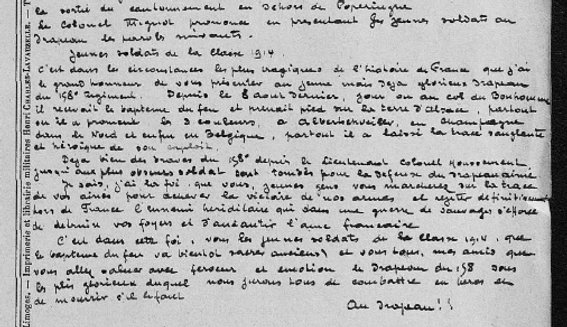 la sortie du cantonnement en dehors de Poperinghe
Le Colonel Mignot prononce en présentant les jeunes soldats au
Drapeau les paroles suivantes.
Jeunes soldats de la Classe 1914
C'est dans les circonstances les plus tragiques de l'histoire de France que j'ai
le grand honneur de vous présenter au jeune mais déjà glorieux Drapeau
du 158e Régiment. Depuis le 8 aout dernier, jour ou au col du Bonhomme
il recevait le baptême du feu et prenait pied sur la terre d'Alsace, partout
ou il a promené les 3 couleurs, a en Champagne
dans le Nord et enfin en Belgique, partout il a laissé la trace sanglante
et héroïque de son exploit.
Deja bien des braves du 158e depuis le Lieutenant Colonel Houssement
jusqu'aux plus obscurs soldat sont tombés pour la defense du drapeau aimé
Je sais, j'ai la foi que vous, jeunes gens vous marcherez sur la trace
de vos ainés pour achever la victoire de nos armes et rejeter définitivement
hors de France l'ennemi héréditaire qui dans une guerre de sauvages s'efforce
de detruire vos foyers et d'anéantir l'ame francaise
C'est dans cette foi, vous les jeunes soldats de la Classe 1914, que
le baptême du feu va bientot sacrer anciens, et vous tous, mes amis que
vous allez saluer avec ferveur et emotion le Drapeau du 158 sous
les plis glorieux duquel nous jurons tous de combattre en héros et
de mourir s'il enfaut
Au Drapeau!!
Limoges. — Imprimerie et librairie militaires Henri CHARLES-LAVAUZELLE.